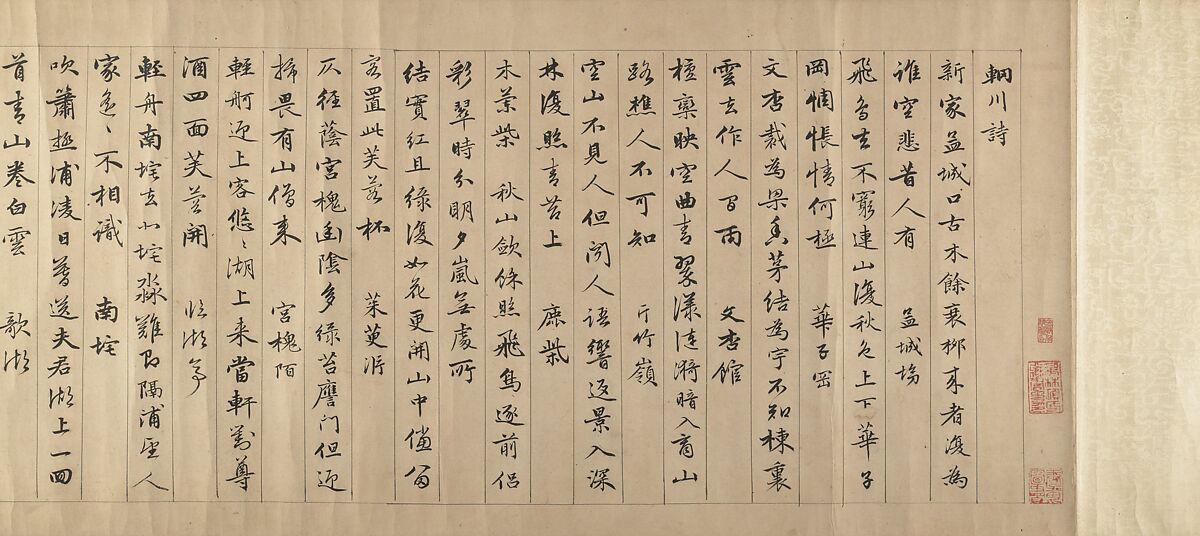 輞川詩
新家孟城口古木餘衰柳来者復為
誰空悲昔人有 孟城坳
飛鳥去不窮連山復秋色上下華子
岡惆悵情何極 華子岡
文杏裁為梁香茅結為宇不知棟裏
雲去作人間雨 文杏館
檀欒映空曲青翠漾漣漪暗入商山
路樵人不可知 斤竹嶺
空山不見人但聞人語響返景入深
林復照青苔上 鹿柴
木蘭柴 秋山斂餘照飛鳥逐前侶
彩翠時分明夕嵐無處所
結實紅且緑復如花更開山中儻留
客置此芙蓉杯 茱萸沜
仄徑蔭宮槐幽陰多緑苔應門但迎
掃畏有山僧来 宮槐陌
輕舸迎上客悠々湖上来當軒對尊
酒四面芙蓉開 臨湖亭
輕舟南垞去北垞淼難即隔浦望人
家遙々不相識 南垞
吹簫極浦凌日暮送夫君湖上一回
首青山卷白雲 歌湖